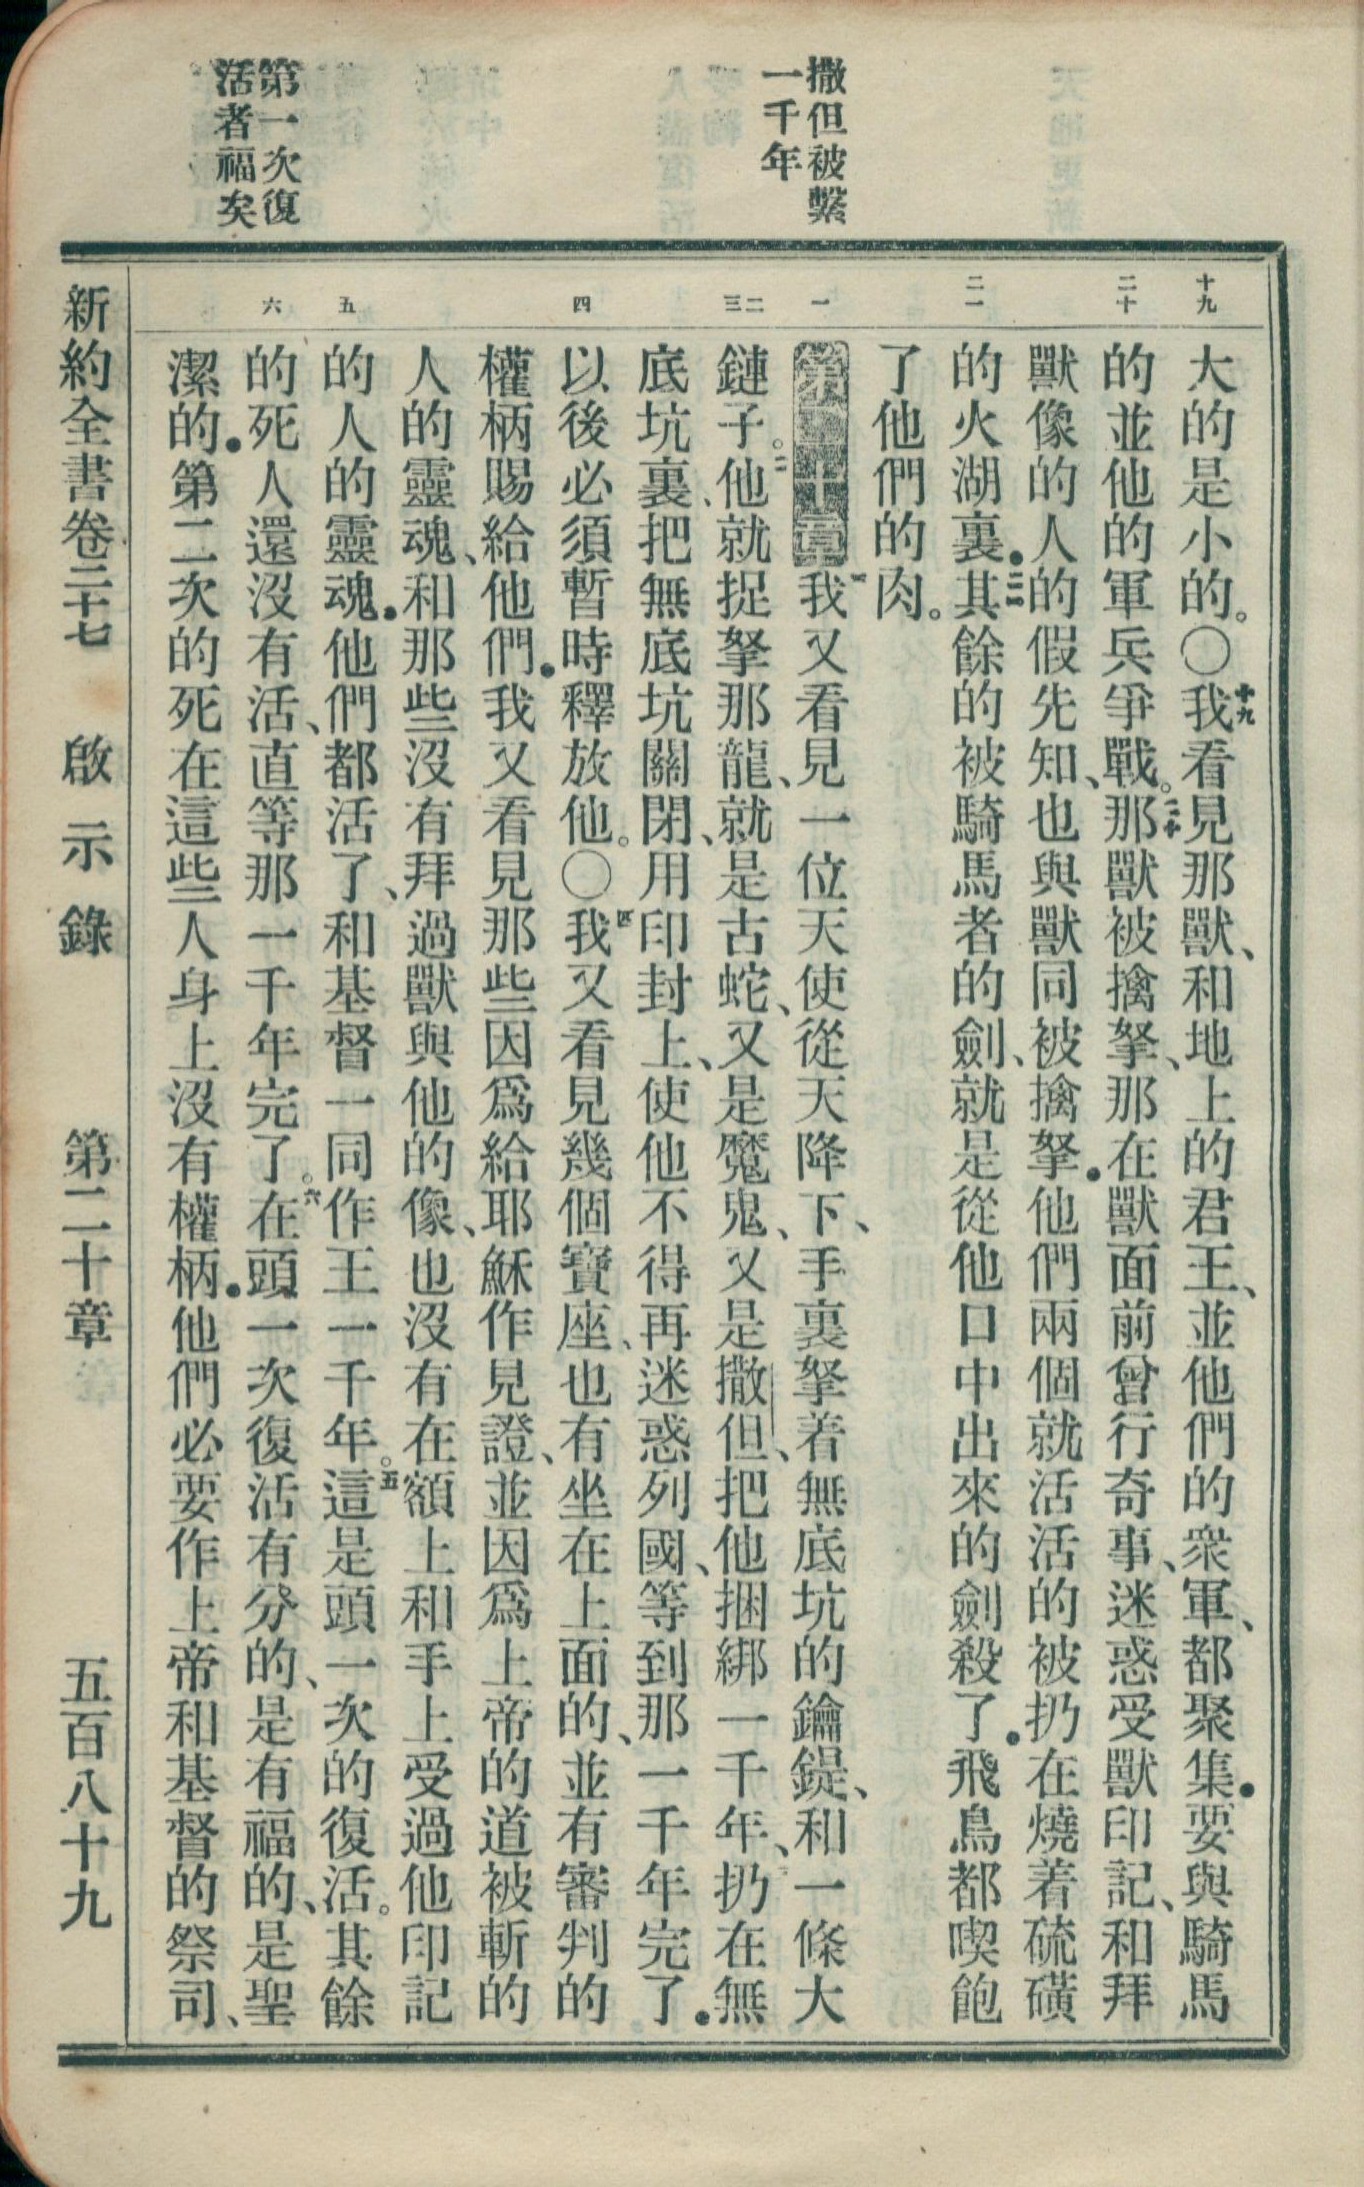 撒但被繫
一千年
第一次復
活者福矣
十九 二十 二一 一 二 三 四 五 六
大的是小的。〇十九我看見那獸、和地上的君王、並他們的衆軍、都聚集．要與騎馬
的並他的軍兵爭戰。二十那獸被擒拏、那在獸面前曾行奇事、迷惑受獸印記、和拜
獸像的人的假先知、也與獸同被擒拏．他們兩個就活活的被扔在燒着硫磺
的火湖裏．二一其餘的被騎馬者的劍、就是從他口中出來的劍殺了．飛鳥都喫飽
了他們的肉。
第二十章一我又看見一位天使從天降下、手裏拏着無底坑的鑰鍉、和一條大
鏈子。二他就捉拏那龍、就是古蛇、又是魔鬼、又是撒但、把他捆綁一千年、三扔在無
底坑裏、把無底坑關閉、用印封上、使他不得再迷惑列國、等到那一千年完了．
以後必須暫時釋放他。〇四我又看見幾個寶座、也有坐在上面的、並有審判的
權柄賜給他們．我又看見那些因爲給耶穌作見證、並因爲上帝的道被斬的
人的靈魂、和那些沒有拜過獸與他的像、也沒有在額上和手上受過他印記
的人的靈魂．他們都活了、和基督一同作王一千年。五這是頭一次的復活。其餘
的死人還沒有活、直等那一千年完了。六在頭一次復活有分的、是有福的、是聖
潔的．第二次的死在這些人身上沒有權柄．他們必要作上帝和基督的祭司、
新約全書卷二十七 啟示錄 第二十章 五百八十九